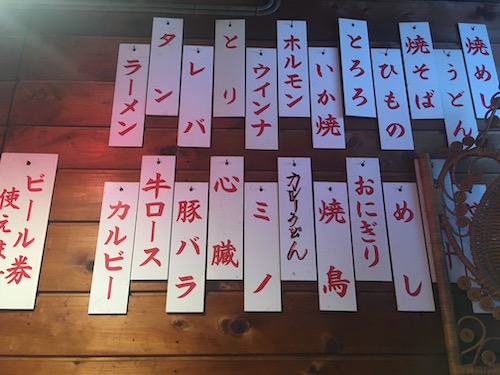 焼めし
うどん
焼そば
ひもの
とろろ
いか焼
ホルモン
ウインナ
とり
レバ
タン
ラーメン
めし
おにぎり
焼鳥
カレーうどん
ミノ
心臓
豚バラ
牛ロース
カルビー
ビール券
使えます